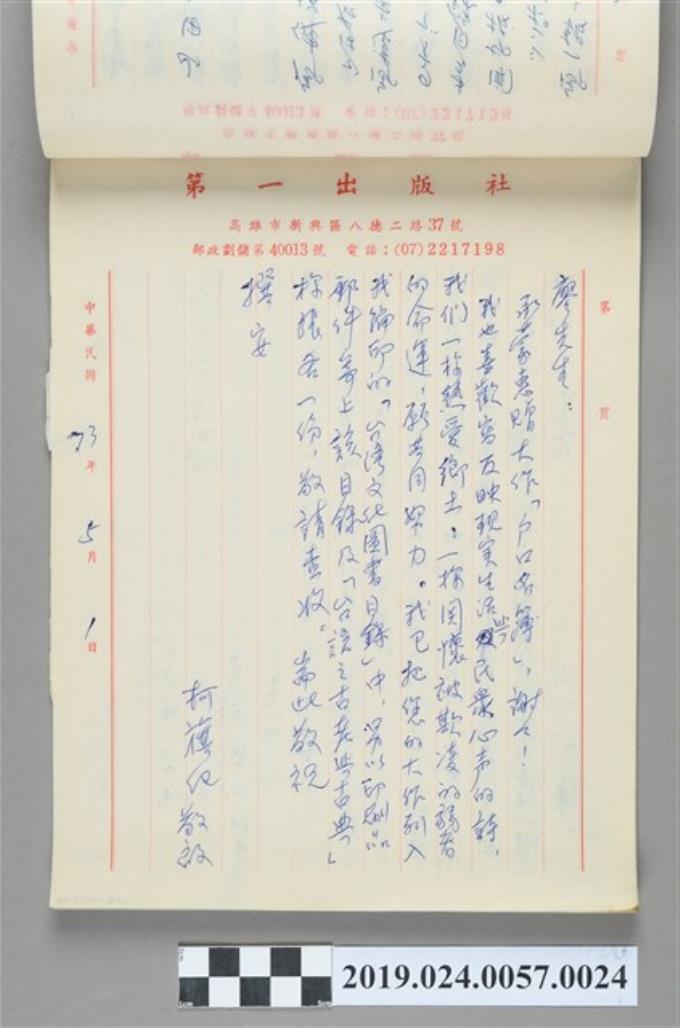 第一出版社
高雄市新興區八德二路37號
郵政劃撥第40013號 電話：(07)2217198
第 頁
廖先生：
承蒙惠贈大作「戶口名簿」，謝々！
我也喜歡寫反映現实生活與民衆心声的詩，
我們一樣熱愛鄉土；一樣関懷被欺凌的弱者
的命運，願共同努力。我已把您的大作列入
我編印的「台湾文化圖書目錄」中，另以印刷品
郵件寄上該目錄及「台語之古老與古典」
樣張各一份，敬請查收。耑此敬祝
撰安
柯旗化敬啟
中華民國73年5月1日
2019.024.0057.0024